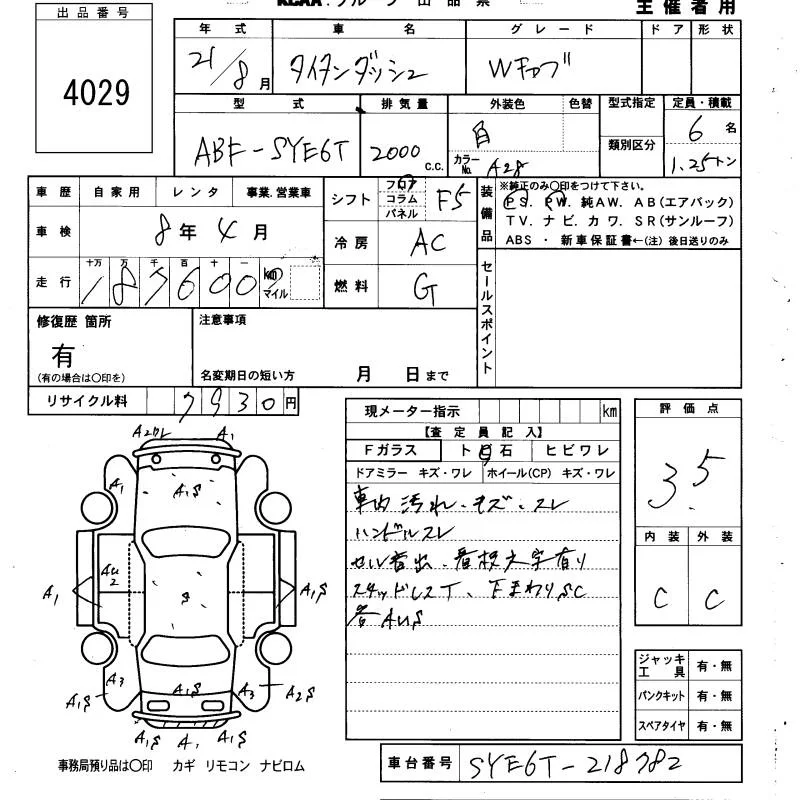 出品番号
4029
主催者用
年式 車名 グレード ドア 形状
21/8月 タイタンダッシュ Wキャブ
型式 排気量 外装色 色替 型式指定 定員・積載
ABF-SYE6T 2000 c.c. 白 類別区分 6名
カラーNo. A28 1.25トン
車歴 自家用 レンタ 事業.営業車
車検 8年4月
走行 十万 万 千 百 十 一
km マイル
シフト フロア コラム パネル F5
冷房 AC
燃料 G
装備品 ※純正のみ○印をつけて下さい。
PS. PW. 純AW. AB(エアバック)
TV. ナビ. カワ. SR(サンルーフ)
ABS ・ 新車保証書←(注) 後日送りのみ
セールスポイント
修復歴 箇所
有
(有の場合は○印を)
注意事項
名変期日の短い方 月 日まで
リサイクル料 7930円
現メーター指示 km
【査定員記入】
Fガラス トビ石 ヒビワレ
ドアミラー キズ・ワレ ホイール(CP) キズ・ワレ
車内汚れ.キズ.スレ
ハンドルスレ
セル音出.看板文字有り
スタッドレスT、下まわりSC
各AUS
評価点
3.5
内装 外装
C C
ジャッキ工具 有・無
パンクキット 有・無
スペアタイヤ 有・無
A1
A1
A1S
AU2
A1
S
A1S
A3
A1S
A1S
A3
A2S
A1S
A1
A1S
事務局預り品は○印 カギ リモコン ナビロム
車台番号 SYE6T-218782